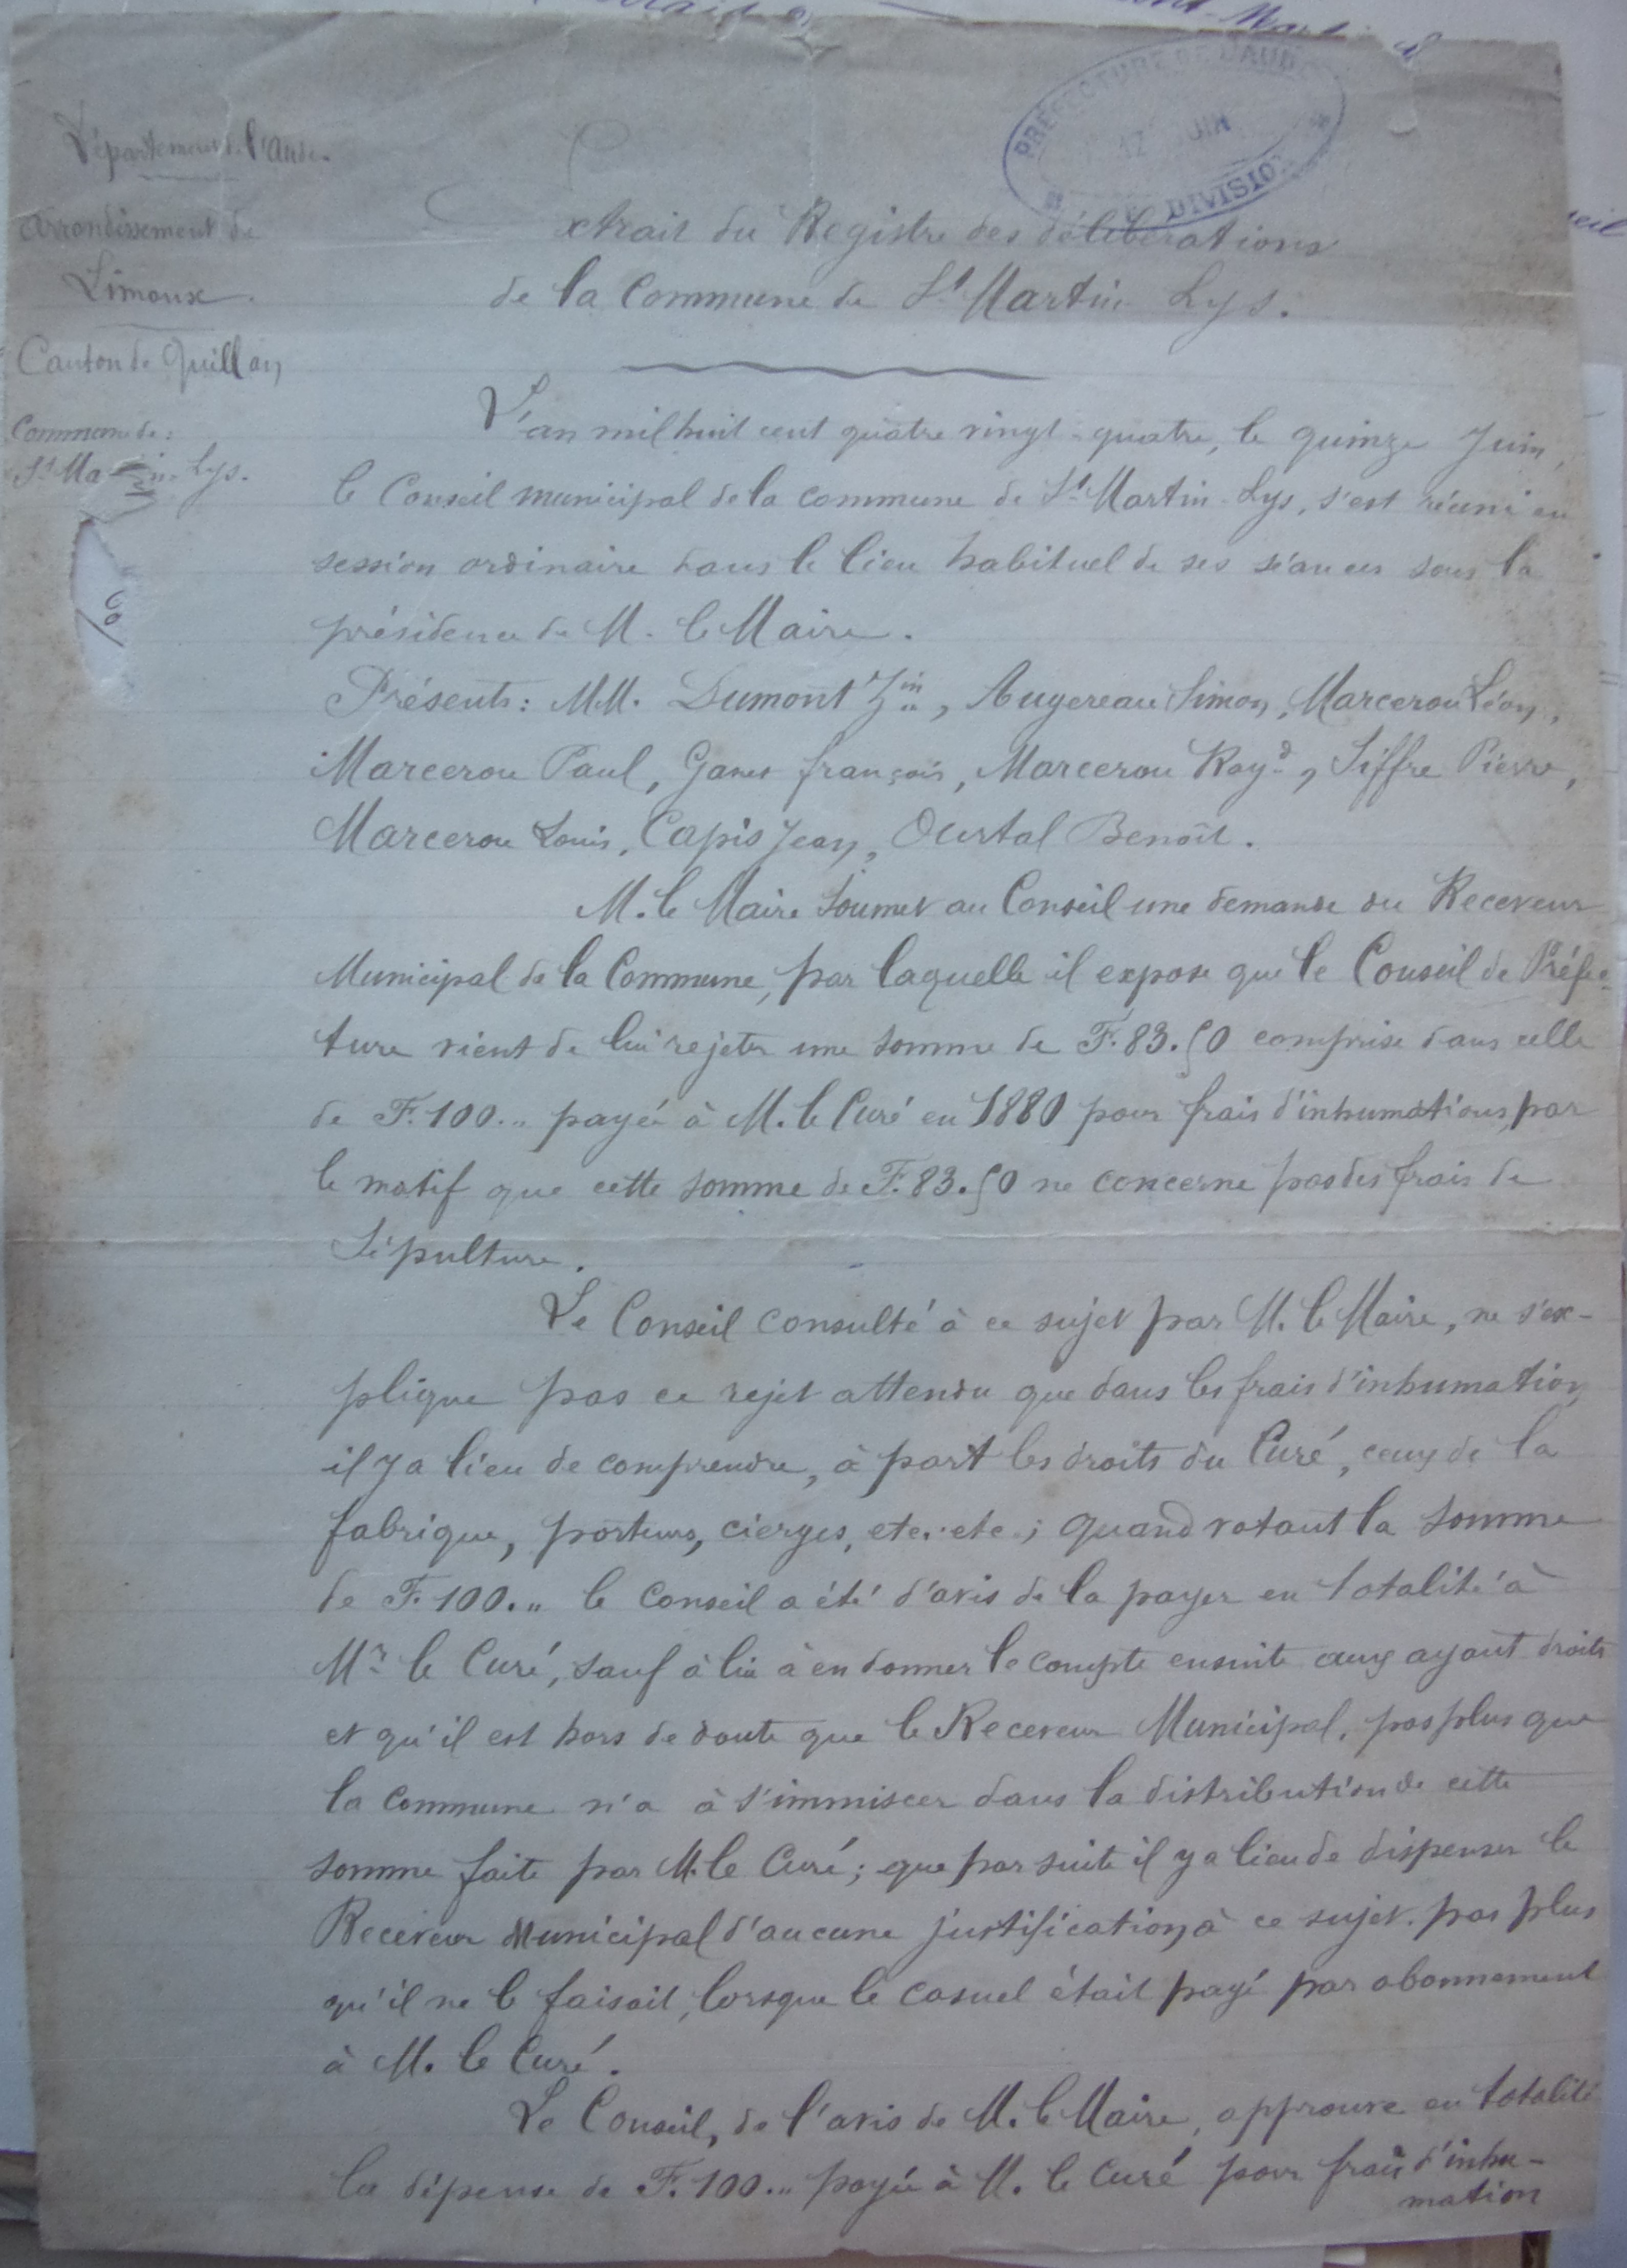 Département de l'Aude.
Arrondissement de
Limoux.
Canton de Quillan
Commune de :
St Martin-Lys.
PRÉFECTURE DE L'AUDE
17 JUIN
DIVISION
Extrait du Registre des délibérations
de la Commune de St Martin Lys.
L'an mil huit cent quatre vingt-quatre, le quinze Juin,
le Conseil municipal de la commune de St Martin-Lys, s'est réuni en
session ordinaire dans le lieu habituel de ses séances sous la
présidence de M. le Maire.
Présents : MM. Dumont Jin, Augereau Simon, Marcerou Léon,
Marcerou Paul, Garer françois, Marcerou Rayd, Siffre Pierre,
Marcerou Louis, Capis Jean, Ourtal Benoît.
M. le Maire soumet au Conseil une demande du Receveur
Municipal de la Commune, par laquelle il expose que le Conseil de Préfec-
ture vient de lui rejeter une somme de F. 83.50 comprise dans celle
de F. 100.„ payée à M. le Curé en 1880 pour frais d'inhumations, par
le motif que cette somme de F. 83.50 ne concerne pas des frais de
Sépulture.
Le Conseil consulté à ce sujet par M. le Maire, ne s'ex-
plique pas ce rejet attendu que dans les frais d'inhumation
il y a lieu de comprendre, à part les droits du Curé, ceux de la
fabrique, porteurs, cierges, etc. etc ; quand votant la somme
de F. 100.„ le Conseil a été d'avis de la payer en totalité à
Mr le Curé, sauf à lui à en donner le compte ensuite aux ayant droits
et qu'il est hors de doute que le Receveur Municipal, pas plus que
la Commune n'a à s'immiscer dans la distribution de cette
somme faite par M. le Curé ; que par suite il y a lieu de dispenser le
Receveur Municipal d'aucune justification à ce sujet. pas plus
qu'il ne le faisait, lorsque le casuel était payé par abonnement
à M. le Curé.
Le Conseil, de l'avis de M. le Maire, approuve en totalité
la dépense de F. 100.„ payée à M. le Curé pour frais d'inhu-
mation